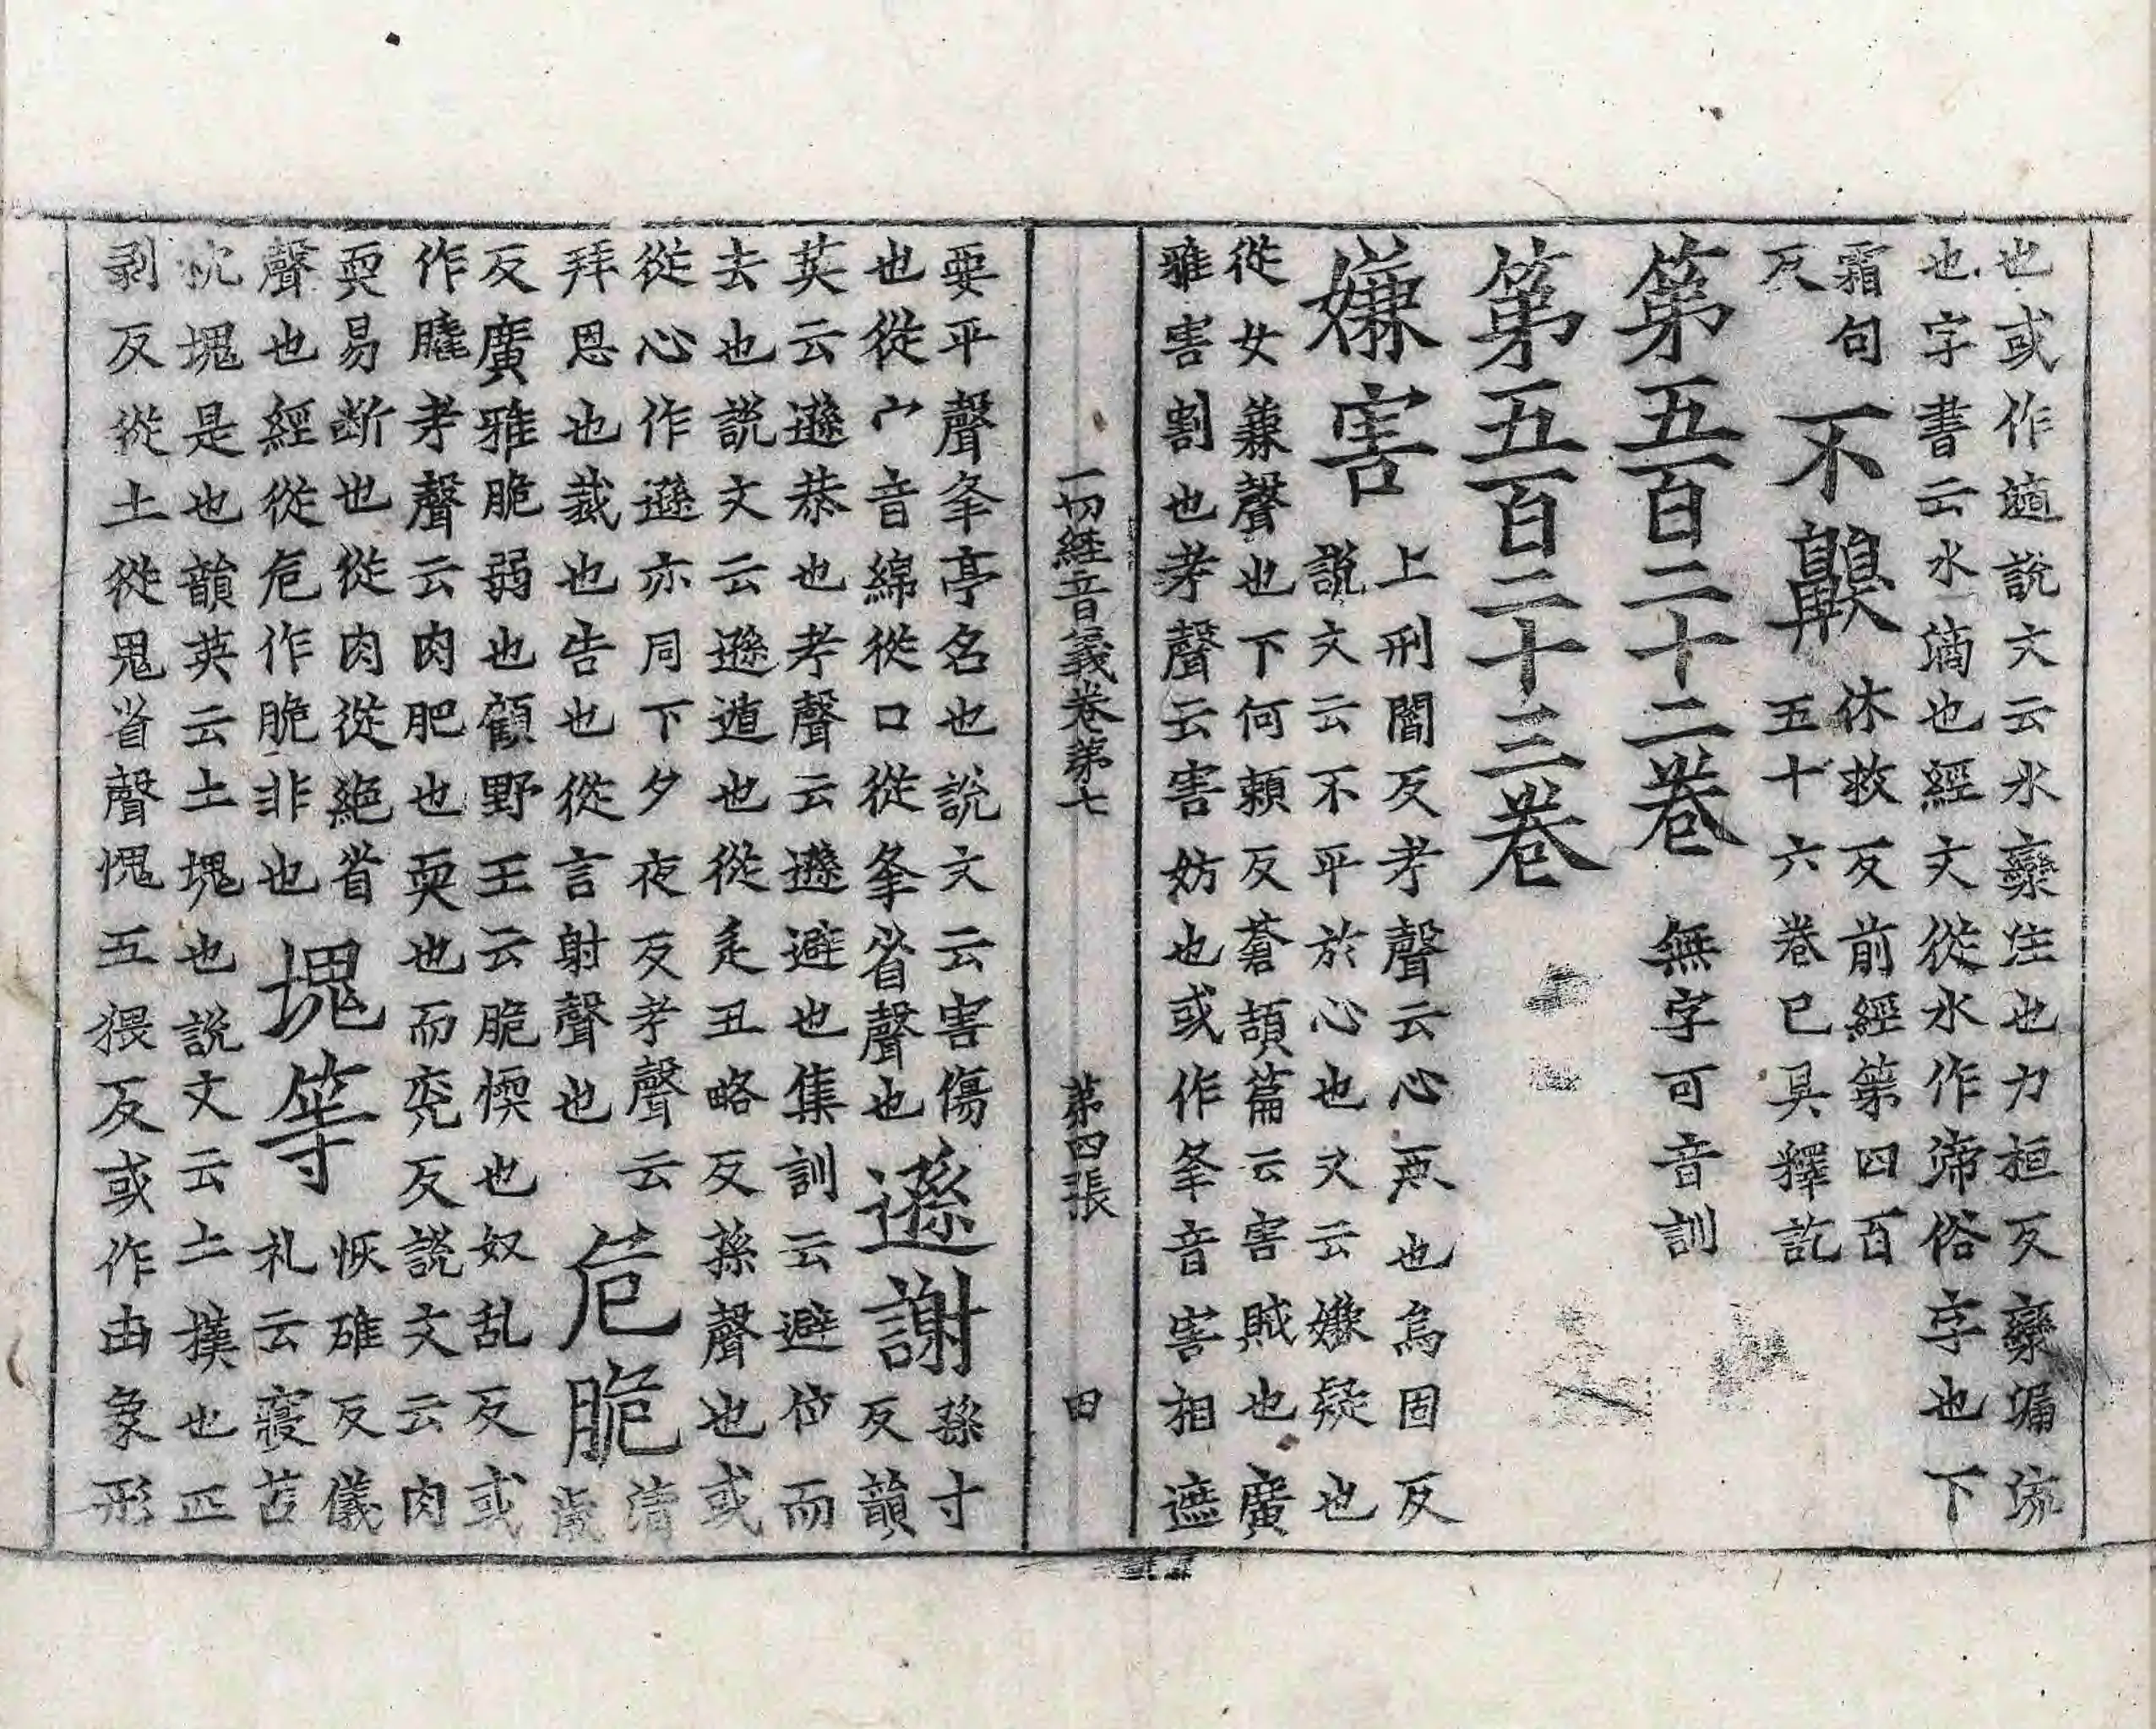 也或作適說文云水欒注也力桓反欒漏流
也字書云水滴也經文從水作渧俗字也下
霜句
反
不齅
休救反前經第四百
五十六卷已具釋訖
第五百二十二卷
無字可音訓
第五百二十三卷
嫌害
上刑閻反考聲云心惡也烏固反
說文云不平於心也又云嫌疑也
從女蒹聲也下何賴反蒼頡篇云害賊也廣
雅害割也考聲云害妨也或作夆音害相遮
一切經音義卷第七 第四張 田
要平聲夆亭名也說文云害傷
也從宀音綿從口從夆省聲也
遜謝
孫寸
反韻
英云遜恭也考聲云遜避也集訓云避位而
去也說文云遜遁也從辵丑略反孫聲也或
從心作遜亦同下夕夜反考聲云
拜恩也薉也告也從言射聲也
危脆
清
歲
反廣雅脆弱也顧野王云脆愞也奴乱反或
作膬考聲云肉肥也耎也而兖反說文云肉
耎易断也從肉從絶省
聲也經從危作脆非也
塊等
恢碓反儀
礼云寢苫
枕塊是也韻英云土塊也說文云土墣也疋
剥反從土從鬼省聲愧五猥反或作凷象形